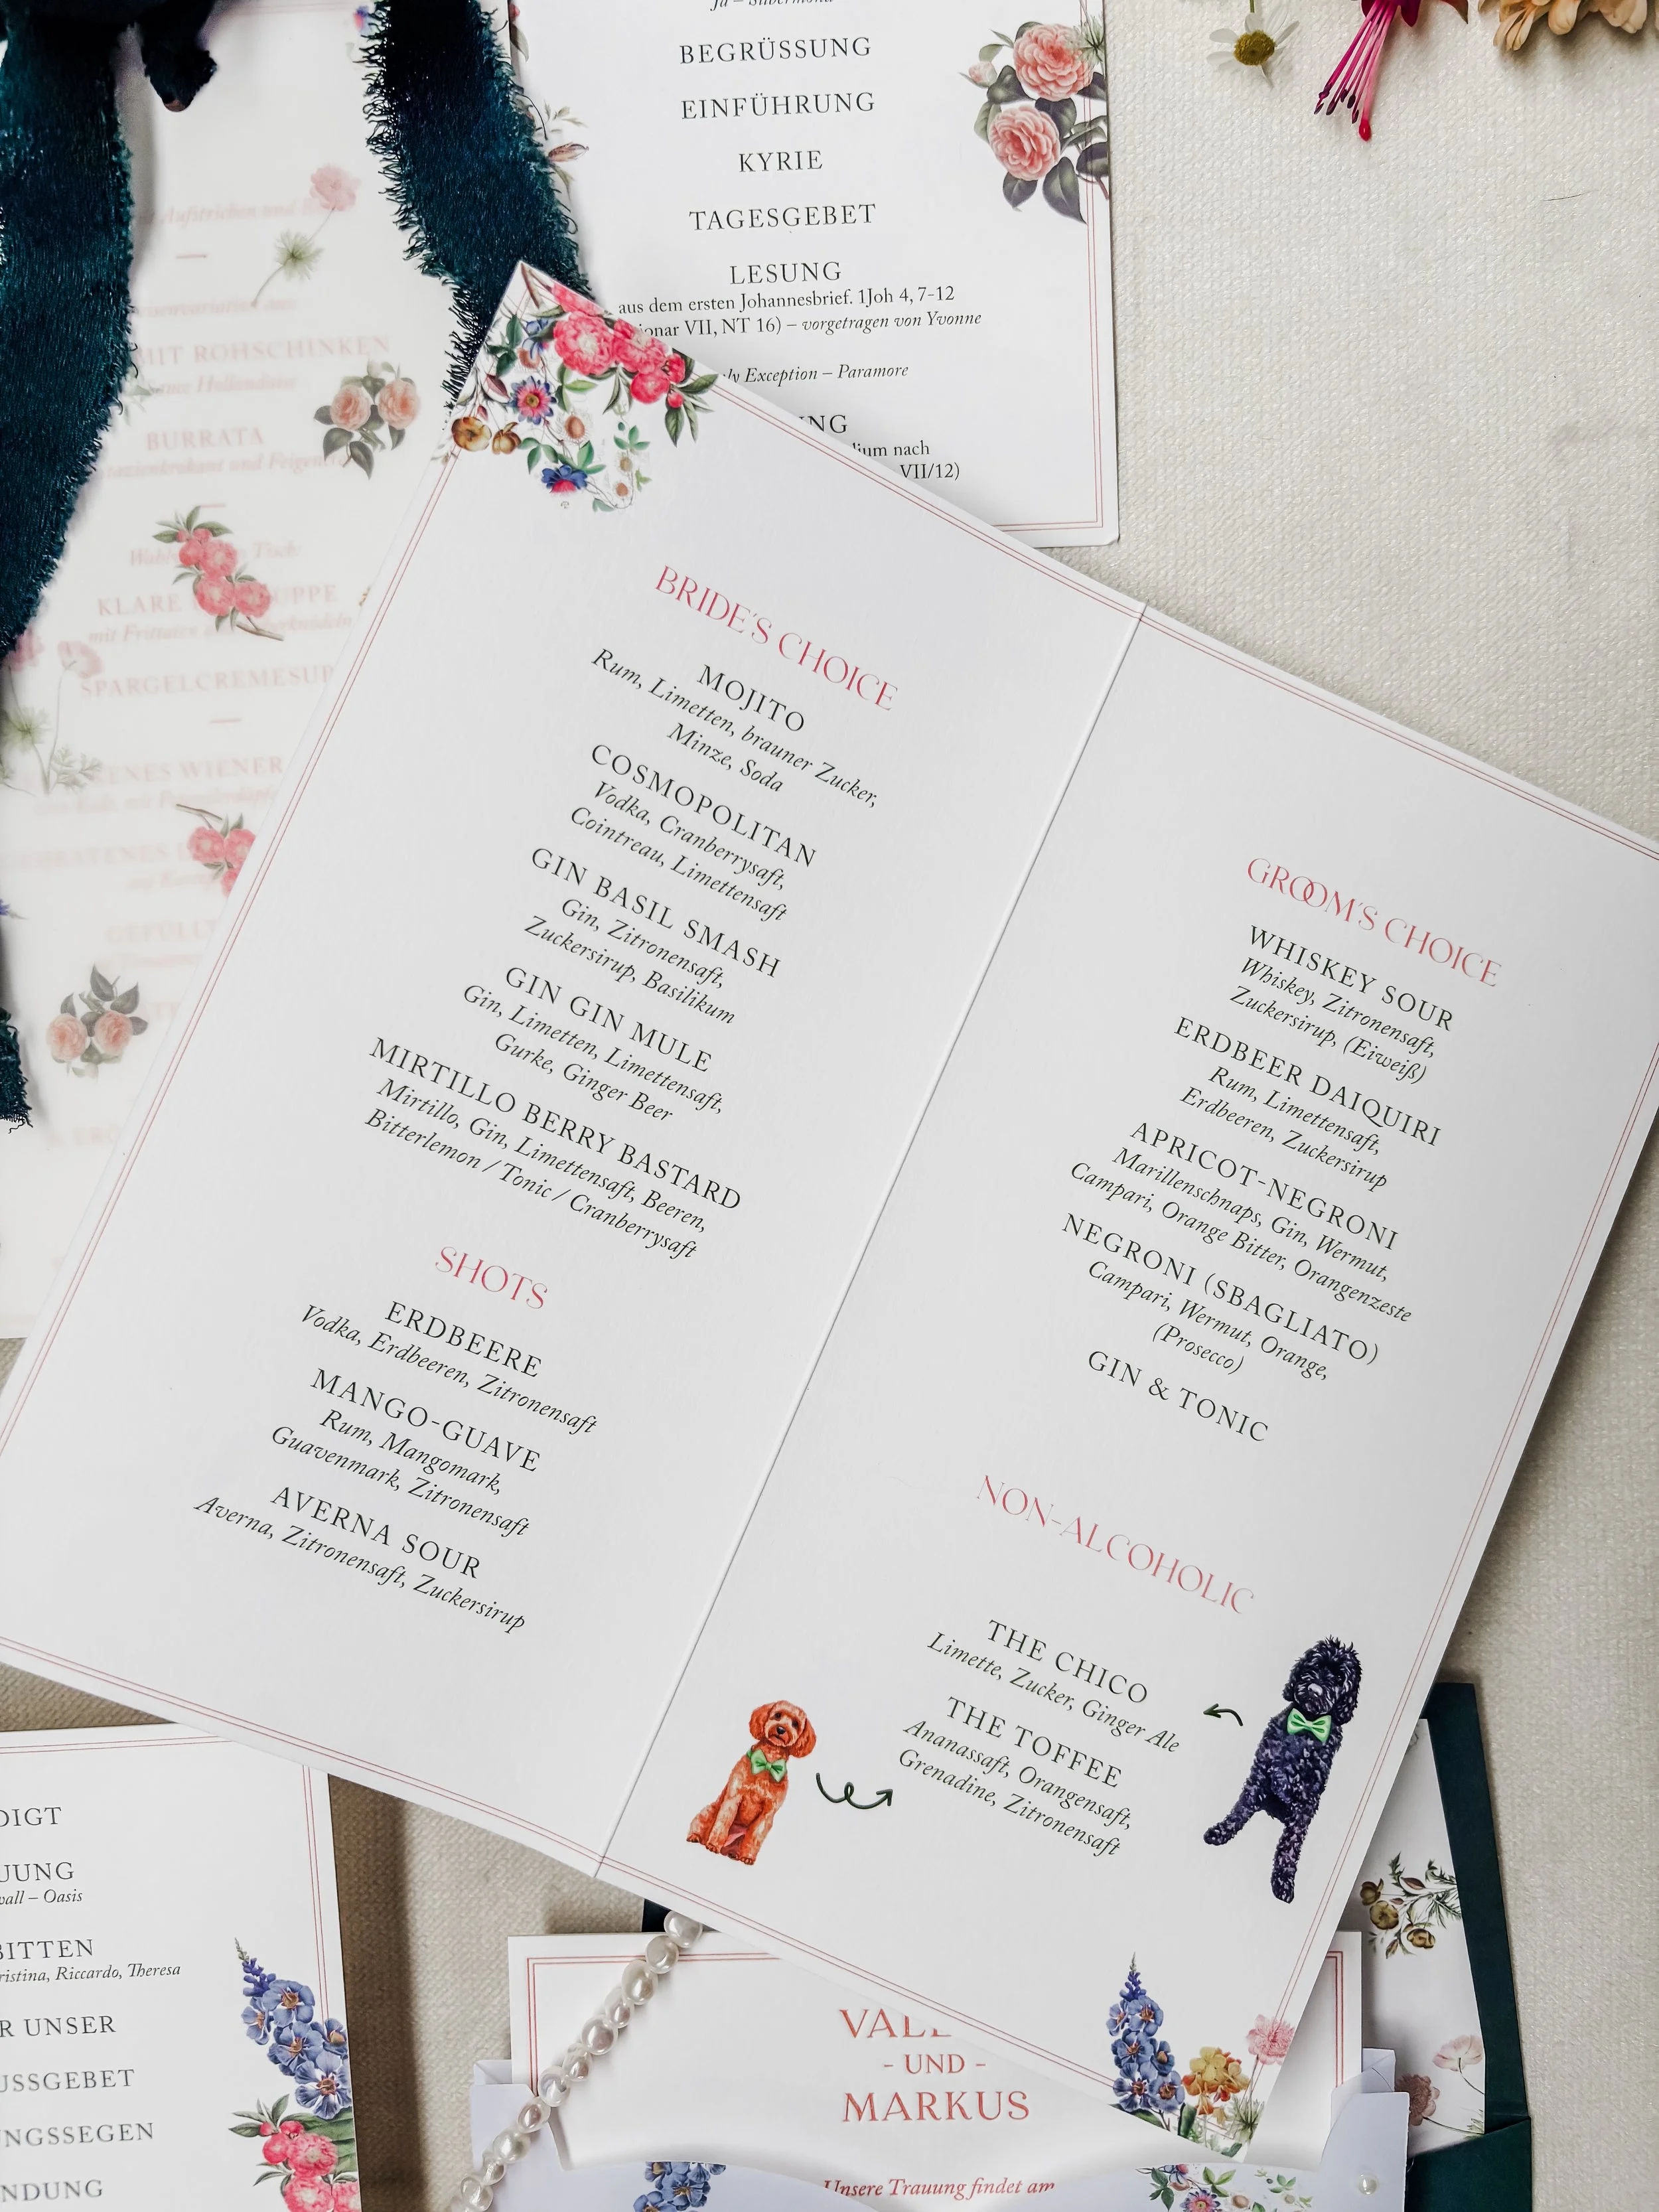 Ja – Silbermond
BEGRÜSSUNG
EINFÜHRUNG
KYRIE
TAGESGEBET
LESUNG
aus dem ersten Johannesbrief. 1Joh 4, 7-12
VII, NT 16) – vorgetragen von Yvonne
Exception – Paramore
nach
VII/12)
Aufstrichen und
MIT ROHSCHINKEN
Hollendaise
BURRATA
und
Tisch:
KLARE
mit Frittaten
WIENER
BRIDE'S CHOICE
MOJITO
Rum, Limetten, brauner Zucker,
Minze, Soda
COSMOPOLITAN
Vodka, Cranberrysaft,
Cointreau, Limettensaft
GIN BASIL SMASH
Gin, Zitronensaft,
Zuckersirup, Basilikum
GIN GIN MULE
Gin, Limetten, Limettensaft,
Gurke, Ginger Beer
MIRTILLO BERRY BASTARD
Mirtillo, Gin, Limettensaft, Beeren,
Bitterlemon / Tonic / Cranberrysaft
SHOTS
ERDBEERE
Vodka, Erdbeeren, Zitronensaft
MANGO-GUAVE
Rum, Mangomark,
Guavenmark, Zitronensaft
AVERNA SOUR
Averna, Zitronensaft, Zuckersirup
GROOM'S CHOICE
WHISKEY SOUR
Whiskey, Zitronensaft,
Zuckersirup, (Eiweiß)
ERDBEER DAIQUIRI
Rum, Limettensaft,
Erdbeeren, Zuckersirup
APRICOT-NEGRONI
Marillenschnaps, Gin, Wermut,
Campari, Orange Bitter, Orangenzeste
NEGRONI (SBAGLIATO)
Campari, Wermut, Orange,
(Prosecco)
GIN & TONIC
NON-ALCOHOLIC
THE CHICO
Limette, Zucker, Ginger Ale
THE TOFFEE
Ananassaft, Orangensaft,
Grenadine, Zitronensaft
DIGT
UUNG
wall – Oasis
BITTEN
ristina, Riccardo, Theresa
R UNSER
USSGEBET
NGSSEGEN
NDUNG
VAL
- UND -
MARKUS
Unsere Trauung findet am